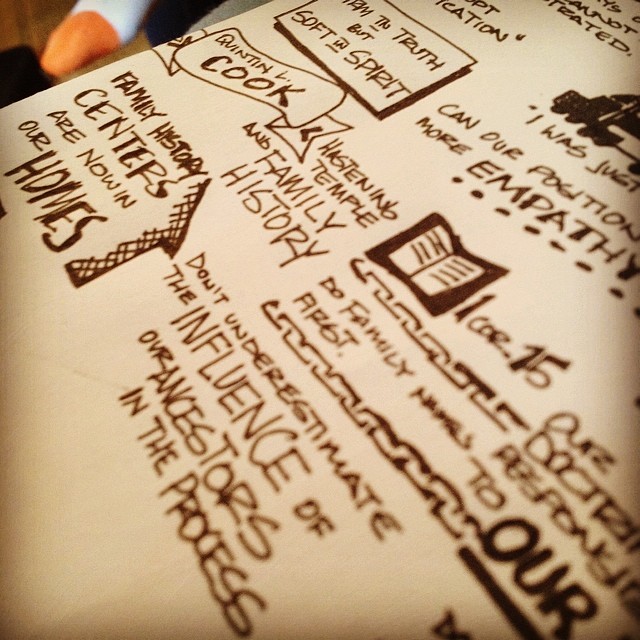 FIRM IN TRUTH
BUT
SOFT IN SPIRIT
QUENTIN L.
COOK
FAMILY HISTORY
CENTERS
ARE NOW IN
OUR HOMES
HASTENING
TEMPLE
AND FAMILY
HISTORY
ICATION"
CANNOT
"I WAS JUST
CAN OUR POSITION
MORE EMPATHY
1 COR. 15
DO FAMILY NAMES
FIRST.
DON'T UNDERESTIMATE
THE INFLUENCE OF
OUR ANCESTORS
IN THE PROCESS
PURE
TO OUR